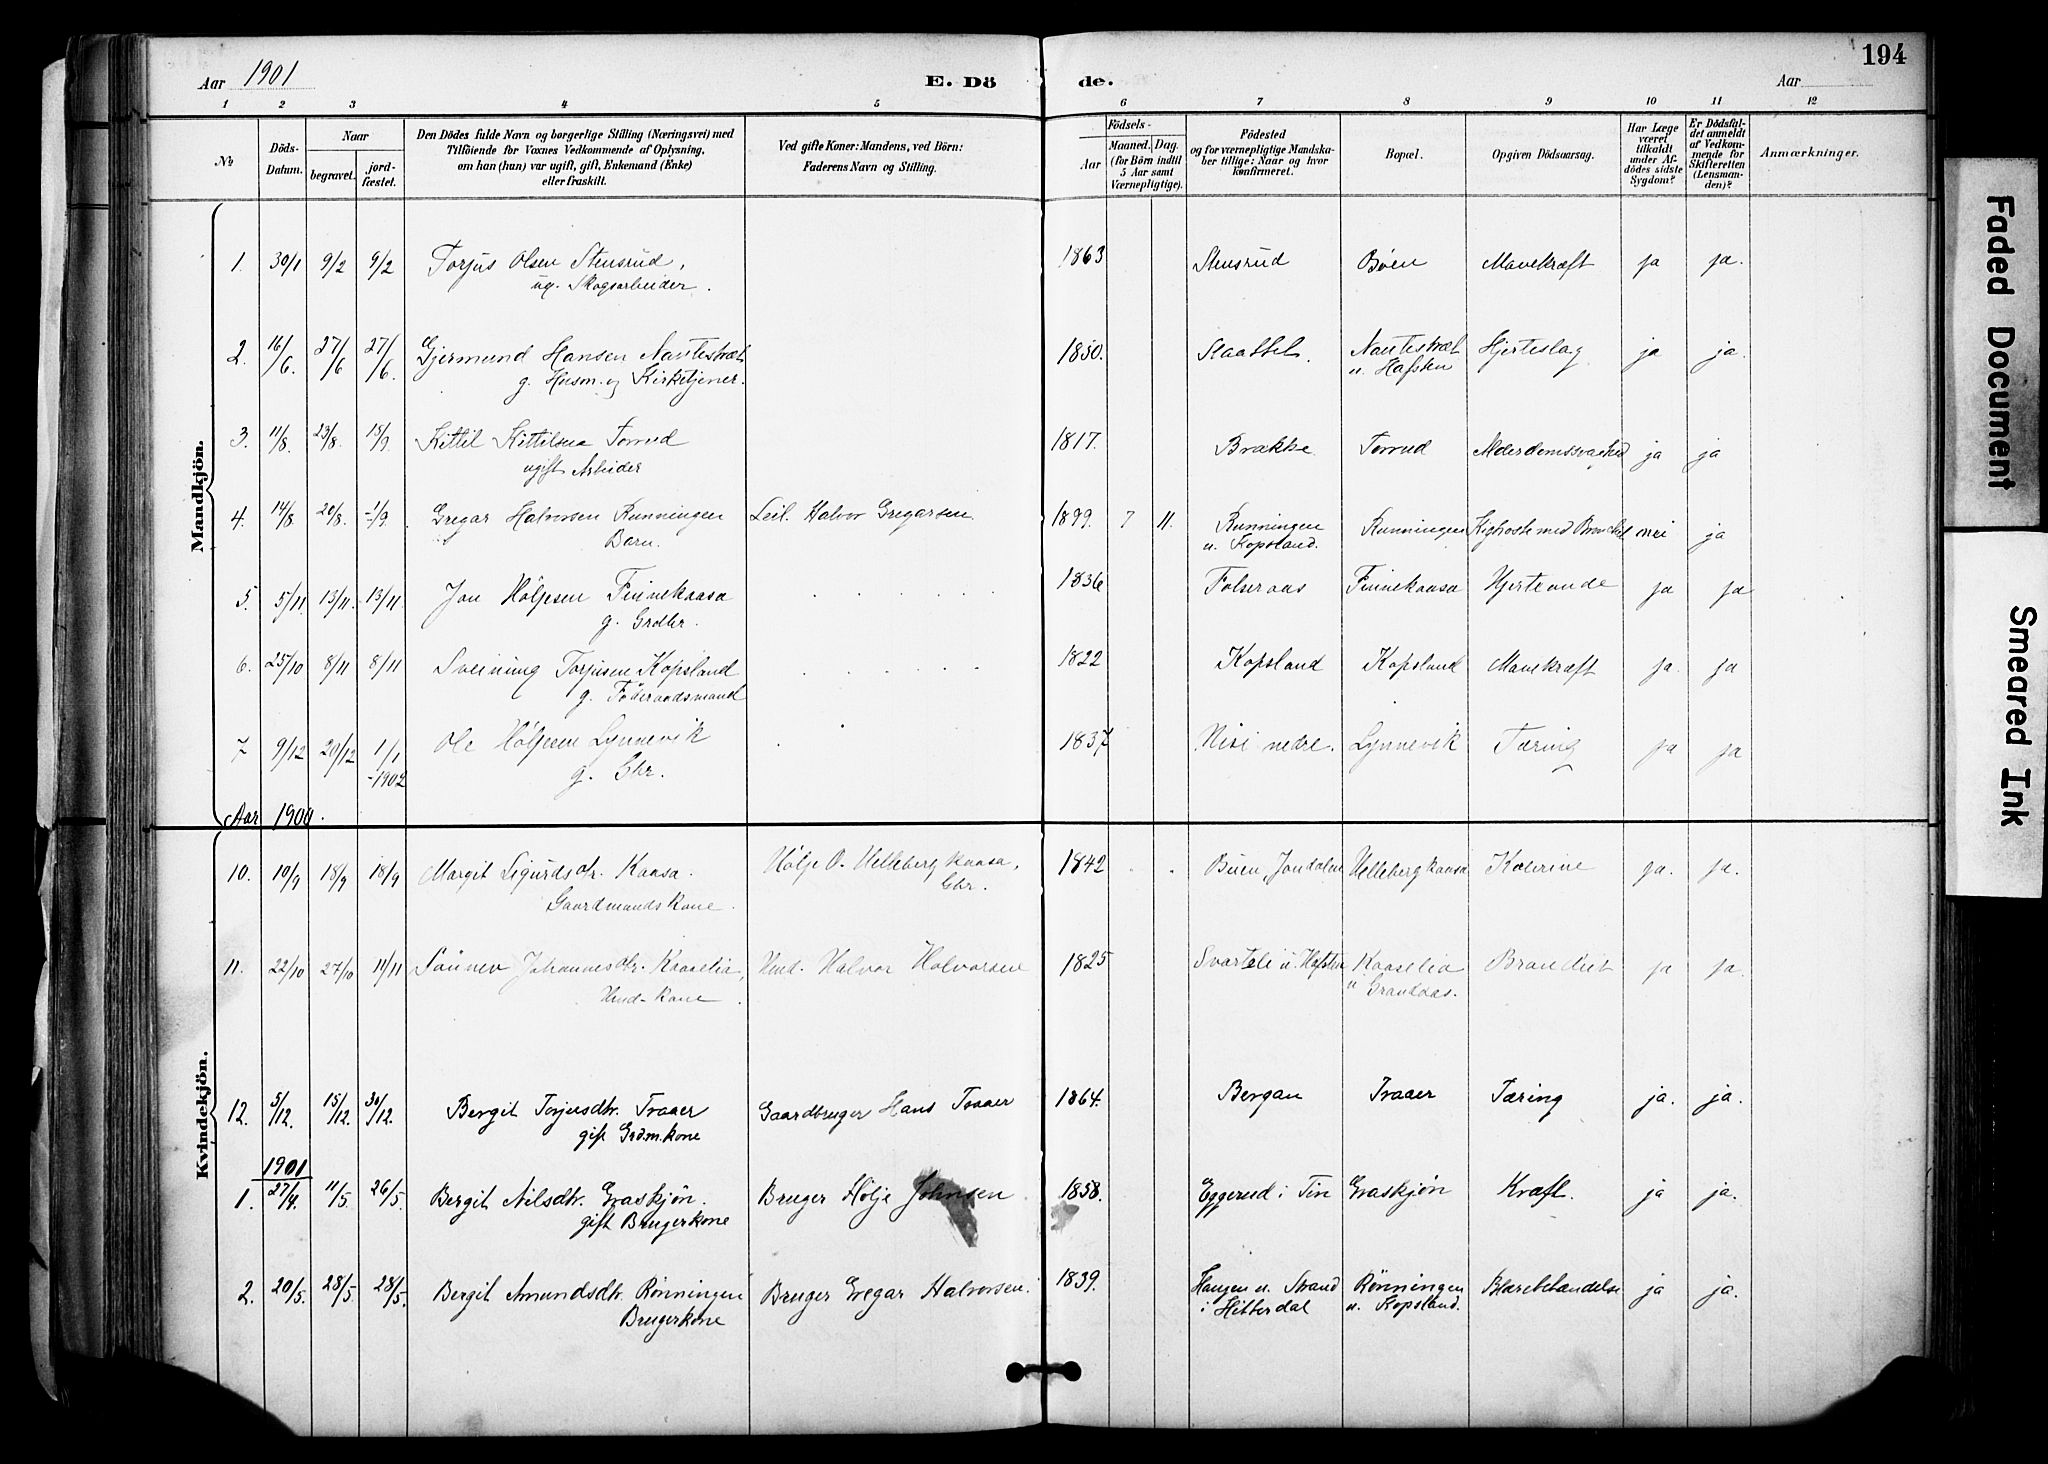 194
Aar 1901
E. Dö
de.
Aar
1 2 3 4 5 6 7 8 9 10 11 12
No
Döds-Datum.
Naar
begravet.
jord-fæstet.
Den Dödes fulde Navn og borgerlige Stilling (Næringsvei) med
Tilföiende for Voxnes Vedkommende af Oplysning,
om han (hun) var ugift, gift, Enkemand (Enke)
eller fraskilt.
Ved gifte Koner: Mandens, ved Börn:
Faderens Navn og Stilling.
Födsels-
Aar
Maaned. Dag.
(for Börn indtil
5 Aar samt
Værnepligtige).
Födested
og for værnepligtige Mandska-
ber tillige: Naar og hvor
konfirmeret.
Bopæl.
Opgiven Dödsaarsag.
Har Læge
været
tilkaldt
under Af-
dödes sidste
Sygdom?
Er Dödsfal-
det anmeldt
af Vedkom-
mende for
Skifteretten
(Lensman-
den)?
Anmærkninger.
Mandkjön.
1. 30/1 9/2 9/2 Torjus Olsen Stensrud, 1863 Stensrud Böen Mavekræft ja ja.
ug. Skogsarbeider.
2. 16/6. 27/6 27/6. Gjermund Hansen Nautestvæt 1850. Nautestvæt Hjerteslag ja ja.
g. Husm. og Kirketjener. u. Hafsten
3. 11/8. 23/8. 15/9. Kittil Kittilsen Torrud 1817. Brække Torrud Alderdomssvaghed ja ja
ugift Arbeider
4. 14/8 20/8. 1/9. Gregar Halvorsen Runningen Leil. Halvor Gregarsen. 1899. 7 11. Runningen Runningen Kighoste med Bronchit nei ja
Barn. u. Kopsland.
5. 5/11. 13/11. 13/11 Jon Höljesen Finnekaasa 1836 Folseraas Finnekaasa Hjerteonde ja ja
g. Grdbr.
6. 25/10 8/11 8/11 Sveining Torjusen Kopsland 1822 Kopsland Kopsland Mavekræft ja. ja
g. Föderaadsmand
7 9/12 20/12 1/1 Ole Höljesen Lynnevik 1837 Nisi nedre. Lynnevik Tæring ja ja
-1902 g. Gbr.
Aar 1900.
Kvindekjön.
10. 10/9 18/9 18/9 Margit Sigurdsdr. Kaasa. Hölje O. Helleberg kaasa, 1842 Buen, Jondalen Hellebergkaasa Kolerine ja. ja.
Gaardmands Kone. Gbr.
11. 22/10 27/10 11/11 Sönnev Johannesdr. Kaaselia, Hmd. Halvor Halvorsen 1825 Svarteli u. Hafsten Kaaselia ja ja.
Hmd-Kone. u Grandaas.
12. 5/12. 15/12. 30/12. Bergit Torjusdtr. Traaer Gaardbruger Hans Traaer 1864. Bergan Traaer Tæring ja. ja.
gift Grdm.kone
1901
1. 27/4. 11/5. 26/5. Bergit Nilsdtr. Graskjön. Bruger Hölje Johnsen 1858. Eggerud i Tin Graskjön Kræft. ja ja.
gift Brugerkone
2. 20/5. 28/5. 28/5. Bergit Amundsdtr. Rönningen Bruger Gregar Halvorsen. 1839. Haugen u. Strand Rönningen Blærebetændelse ja ja.
Brugerkone i Hitterdal u. Kopsland.
Faded Document
Smeared Ink